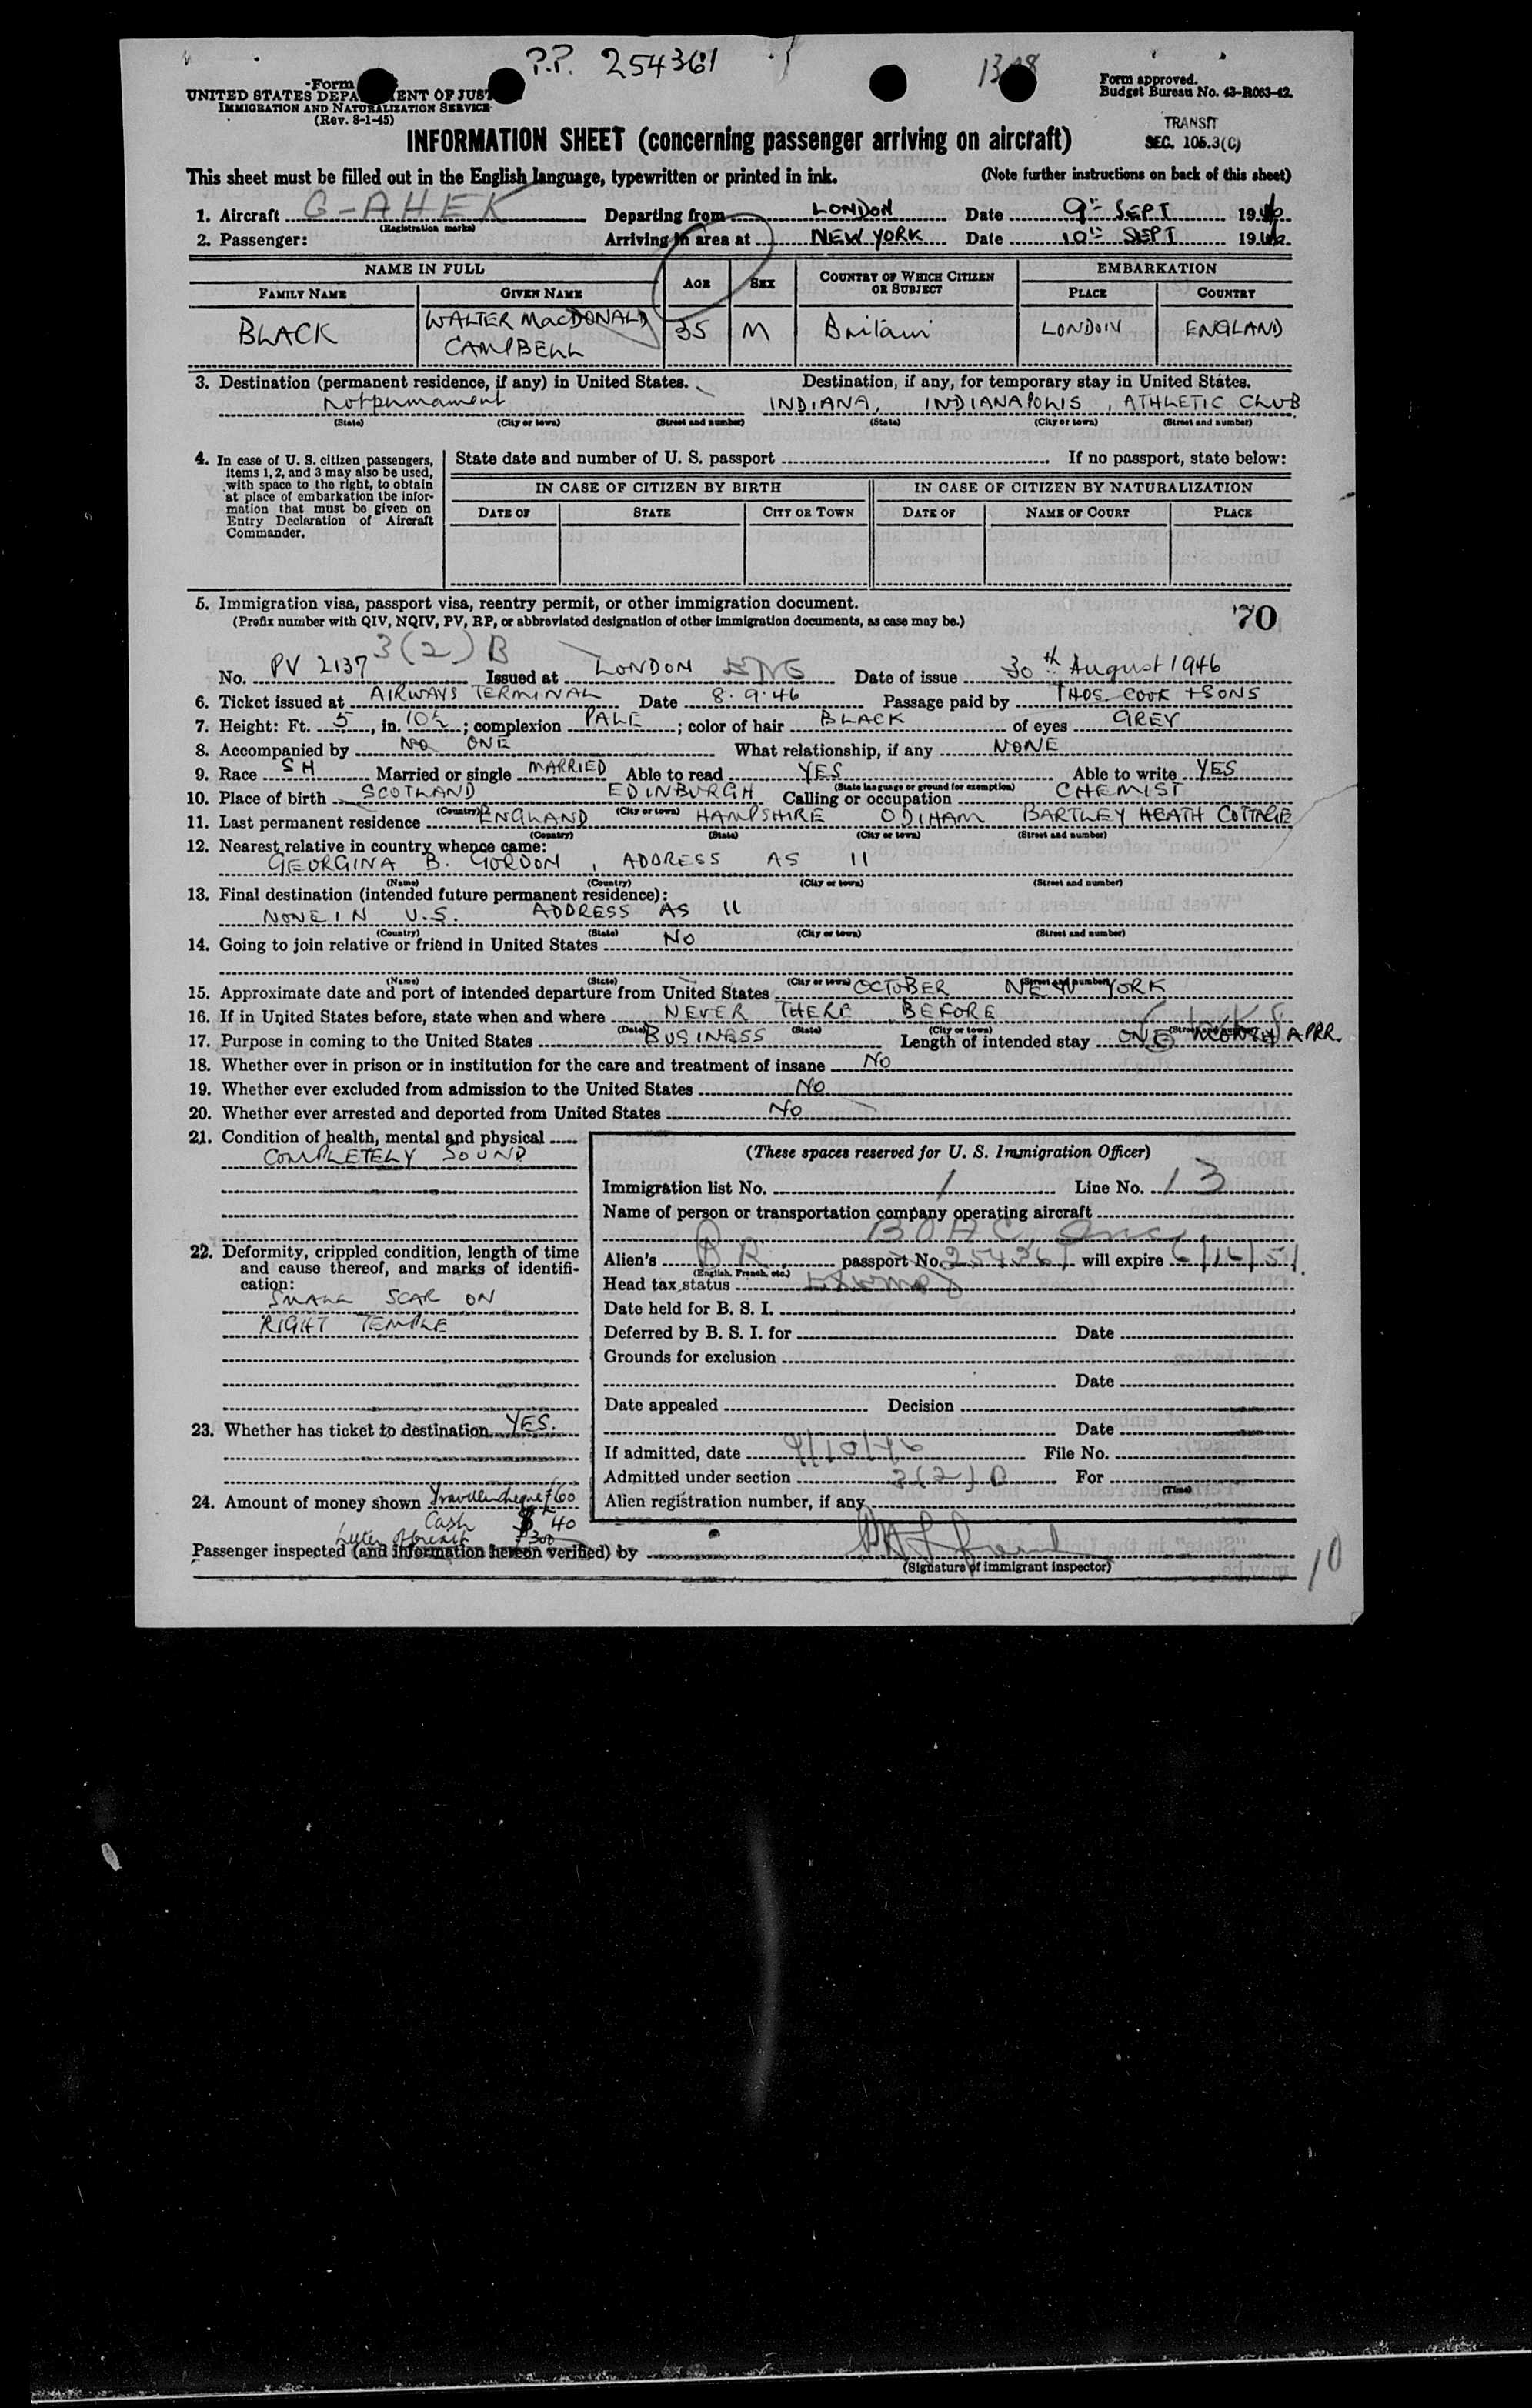 P.P. 254361
Form
UNITED STATES DEPARTMENT OF JUST
IMMIGRATION AND NATURALIZATION SERVICE
(Rev. 8-1-45)
Form approved.
Budget Bureau No. 43-R063-42.
TRANSIT
SEC. 105.3(C)
INFORMATION SHEET (concerning passenger arriving on aircraft)
This sheet must be filled out in the English language, typewritten or printed in ink. (Note further instructions on back of this sheet)
1. Aircraft G-AHEK Departing from LONDON Date 9th SEPT 1946
(Registration marks)
2. Passenger: Arriving in area at NEW YORK Date 10th SEPT 1946
NAME IN FULL AGE SEX COUNTRY OF WHICH CITIZEN OR SUBJECT EMBARKATION
FAMILY NAME GIVEN NAME PLACE COUNTRY
BLACK WALTER MacDONALD CAMPBELL 35 M Britain LONDON ENGLAND
3. Destination (permanent residence, if any) in United States. Destination, if any, for temporary stay in United States.
Not permanent INDIANA, INDIANAPOLIS, ATHLETIC CLUB
(State) (City or town) (Street and number) (State) (City or town) (Street and number)
4. In case of U. S. citizen passengers, items 1, 2, and 3 may also be used, with space to the right, to obtain at place of embarkation the information that must be given on Entry Declaration of Aircraft Commander.
State date and number of U. S. passport If no passport, state below:
IN CASE OF CITIZEN BY BIRTH IN CASE OF CITIZEN BY NATURALIZATION
DATE OF STATE CITY OR TOWN DATE OF NAME OF COURT PLACE
5. Immigration visa, passport visa, reentry permit, or other immigration document.
(Prefix number with QIV, NQIV, PV, RP, or abbreviated designation of other immigration documents, as case may be.)
70
3(2)B
No. PV 2137 Issued at LONDON ENG Date of issue 30th August 1946
6. Ticket issued at AIRWAYS TERMINAL Date 8.9.46 Passage paid by THOS. COOK + SONS
7. Height: Ft. 5, in. 10½; complexion PALE; color of hair BLACK of eyes GREY
8. Accompanied by NO ONE What relationship, if any NONE
9. Race SH Married or single MARRIED Able to read YES Able to write YES
(State language or ground for exemption)
10. Place of birth SCOTLAND EDINBURGH Calling or occupation CHEMIST
(Country) (City or town)
11. Last permanent residence ENGLAND HAMPSHIRE ODIHAM BARTLEY HEATH COTTAGE
(Country) (State) (City or town) (Street and number)
12. Nearest relative in country whence came:
GEORGINA B. GORDON, ADDRESS AS 11
(Name) (Country) (City or town) (Street and number)
13. Final destination (intended future permanent residence):
NONE IN U.S. ADDRESS AS 11
(Country) (State) (City or town) (Street and number)
14. Going to join relative or friend in United States NO
(Name) (State) (City or town) (Street and number)
15. Approximate date and port of intended departure from United States OCTOBER NEW YORK
16. If in United States before, state when and where NEVER THERE BEFORE
(Date) (State) (City or town) (Street and number)
17. Purpose in coming to the United States BUSINESS Length of intended stay ONE MONTH APPR.
18. Whether ever in prison or in institution for the care and treatment of insane NO
19. Whether ever excluded from admission to the United States NO
20. Whether ever arrested and deported from United States NO
21. Condition of health, mental and physical
COMPLETELY SOUND
22. Deformity, crippled condition, length of time and cause thereof, and marks of identification:
SMALL SCAR ON
RIGHT TEMPLE
23. Whether has ticket to destination YES.
24. Amount of money shown Travellers cheque £60
Cash $40
Letter of credit £300
(These spaces reserved for U. S. Immigration Officer)
Immigration list No. 1 Line No. 13
Name of person or transportation company operating aircraft
BOAC, Inc
Alien's BR passport No. 254361 will expire 6/16/51
(English, French, etc.)
Head tax status
Date held for B. S. I.
Deferred by B. S. I. for Date
Grounds for exclusion
Date
Date appealed Decision
Date
If admitted, date 9/10/46 File No.
Admitted under section 3(2)B For
(Time)
Alien registration number, if any
Passenger inspected (and information hereon verified) by
(Signature of immigrant inspector)
10